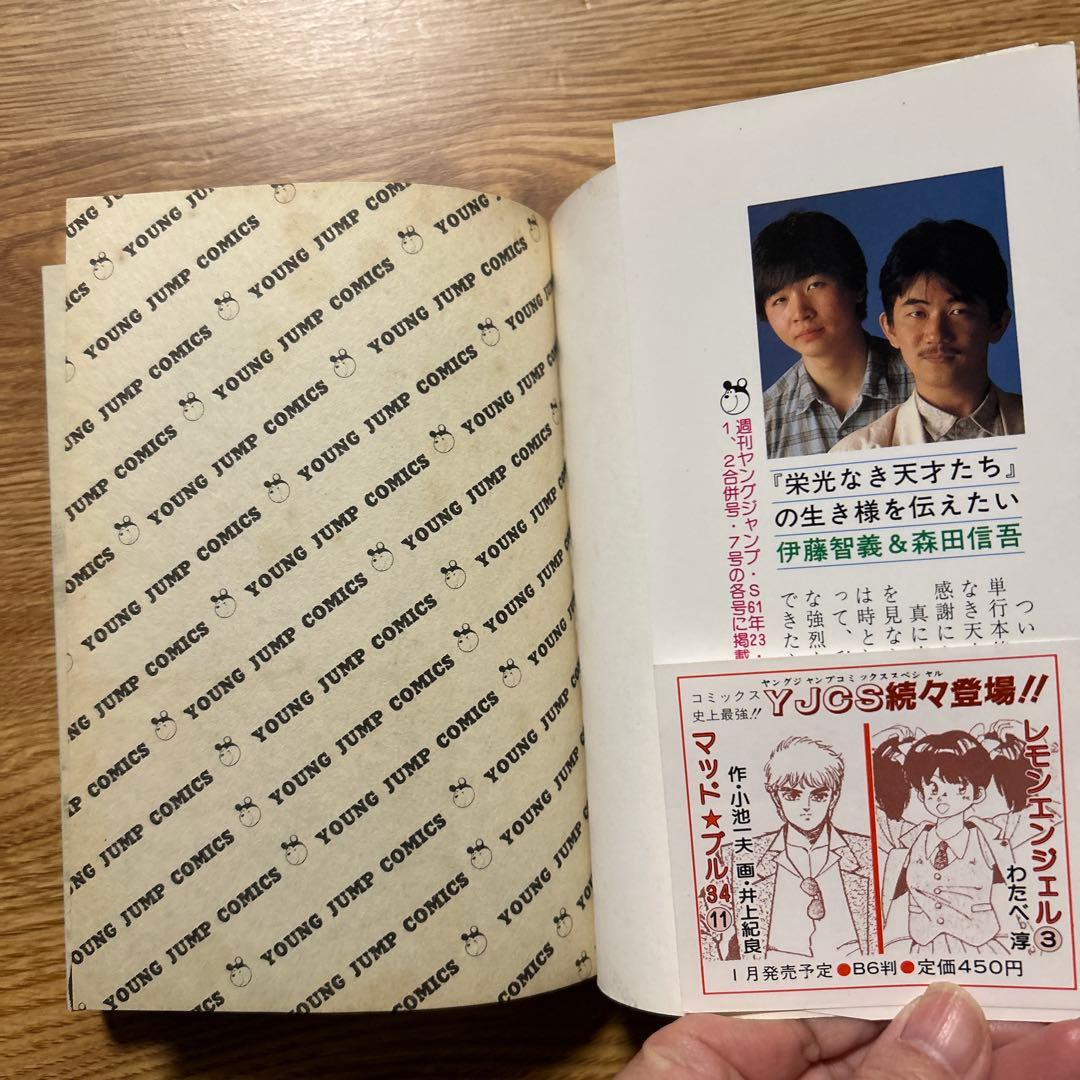 YOUNG JUMP COMICS
YOUNG JUMP COMICS
YOUNG JUMP COMICS
YOUNG JUMP COMICS
YOUNG JUMP COMICS
YOUNG JUMP COMICS
YOUNG JUMP COMICS
YOUNG JUMP COMICS
YOUNG JUMP COMICS
YOUNG JUMP COMICS
YOUNG JUMP COMICS
YOUNG JUMP COMICS
『栄光なき天才たち』
の生き様を伝えたい
伊藤智義&森田信吾
つい
単行本
なき天
感謝に
真に
を見な
は時と
って、
な強烈
できた
週刊ヤングジャンプ・S61年23・
1、2合併号・7号の各号に掲載
コミックス
史上最強!!
ヤングジャンプコミックススペシャル
YJCS続々登場!!
レモンエンジェル③
わたべ淳
マッド★ブル34⑪
作・小池一夫 画・井上紀良
1月発売予定●B6判●定価450円